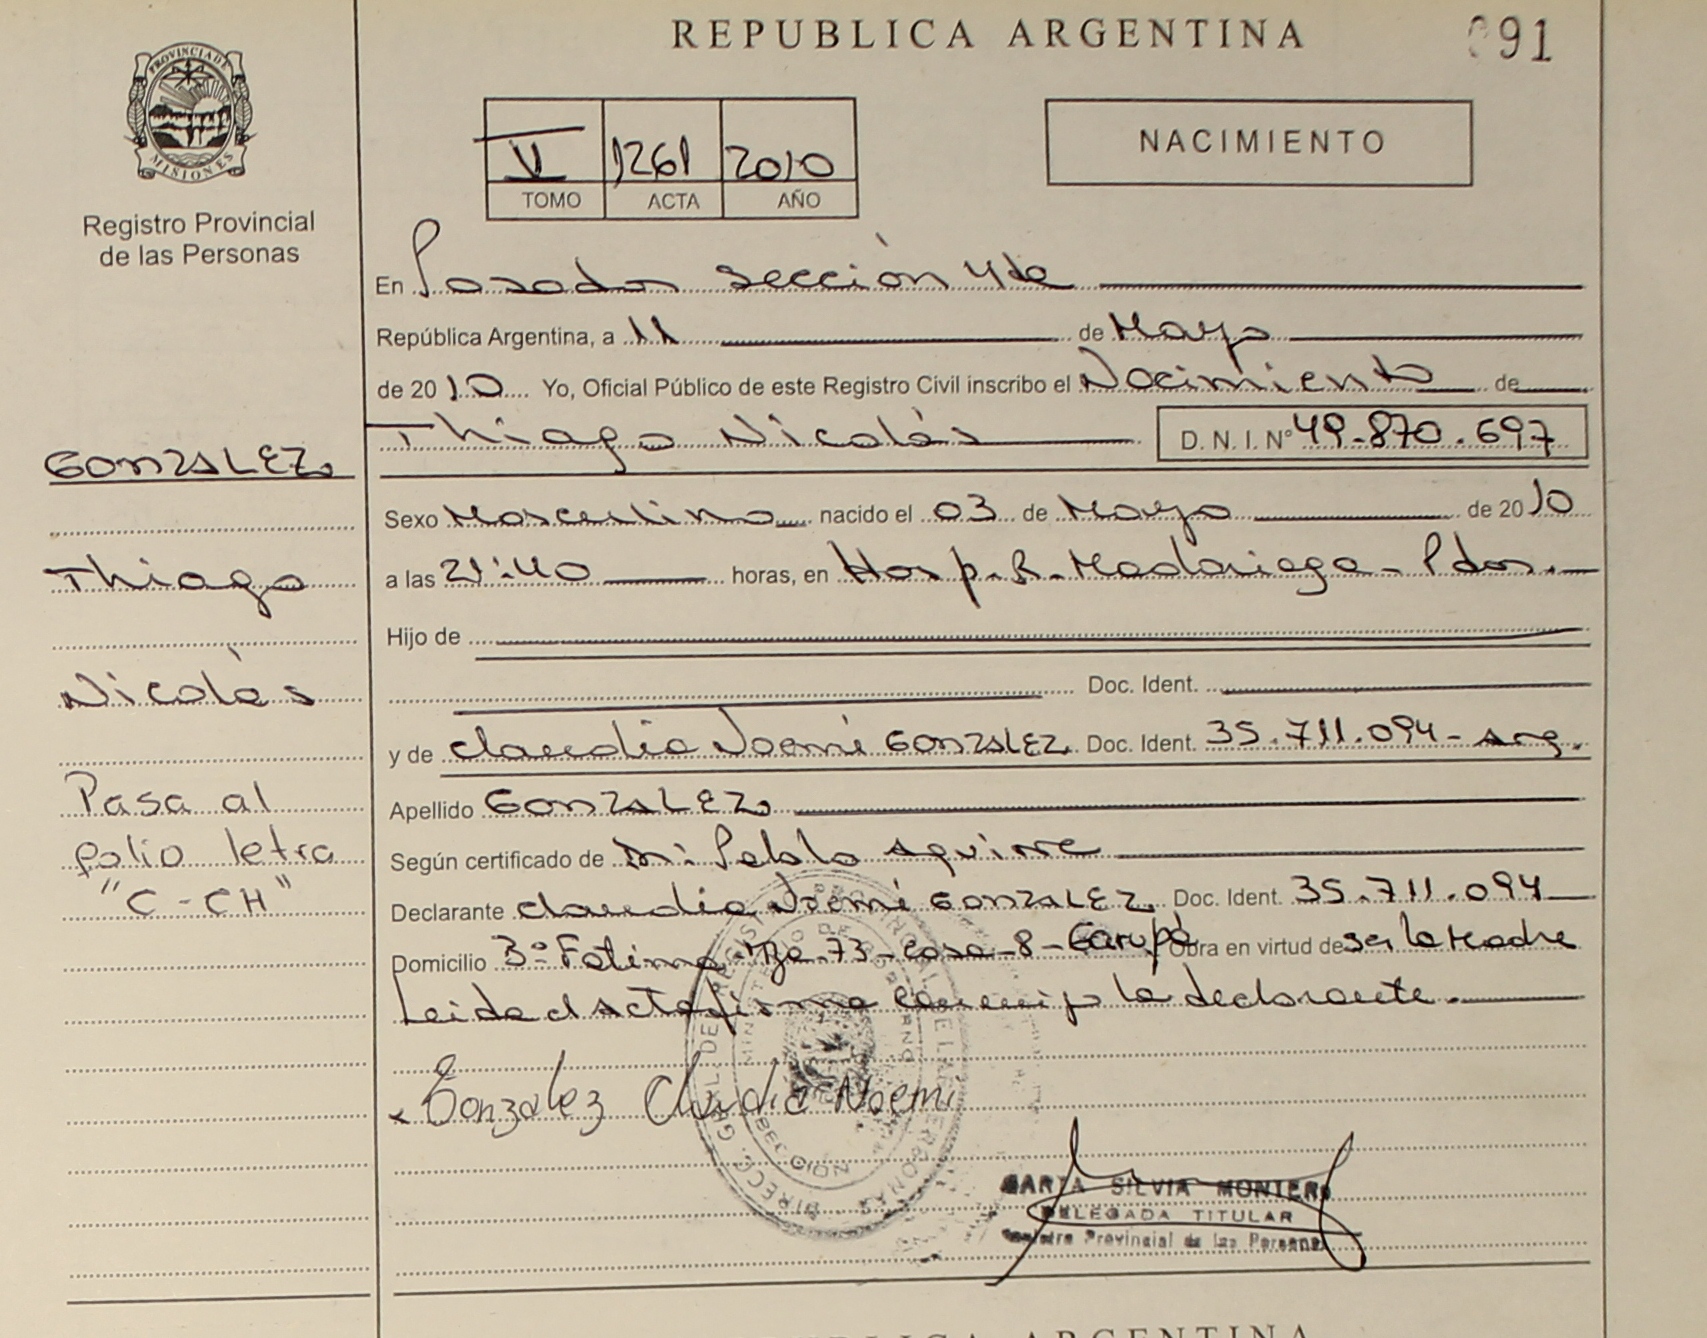 REPUBLICA ARGENTINA
091
PROVINCIA DE
MISIONES
Registro Provincial
de las Personas
V 1261 2010
TOMO ACTA AÑO
NACIMIENTO
En Posadas sección 4de
República Argentina, a 11 de Mayo
de 2010 Yo, Oficial Público de este Registro Civil inscribo el Nacimiento de
Thiago Nicolás D. N. I. Nº 49.870.697
GONZALEZ
Sexo Masculino nacido el 03 de Mayo de 2010
Thiago
a las 21:40 horas, en Hosp. R. Madariaga - Pdas.
Hijo de
Nicolás
Doc. Ident.
y de Claudia Noemí GONZALEZ Doc. Ident. 35.711.094 - Arg.
Pasa al
folio letra
"C - CH"
Apellido GONZALEZ
Según certificado de Dr. Pablo Aguirre
Declarante Claudia Noemí GONZALEZ Doc. Ident. 35.711.094
Domicilio Bº Fatima - Mza 73 - casa - 8 - Garupá Obra en virtud de ser la Madre
Leida el Acta firma conmigo la declarante.
x Gonzalez Claudia Noemi
MARTA SILVIA MONTERO
DELEGADA TITULAR
Registro Provincial de las Personas
REPUBLICA ARGENTINA